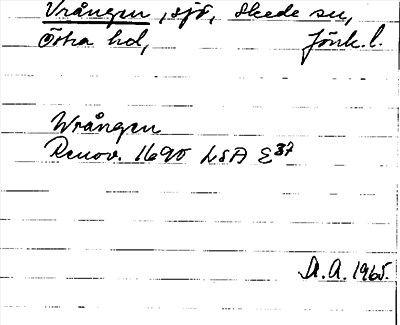 Vrången, sjö, Skede sn,
Östra hd, Jönk. l.
Wrången
Renov. 1690 LSA E37
A.A. 1965.